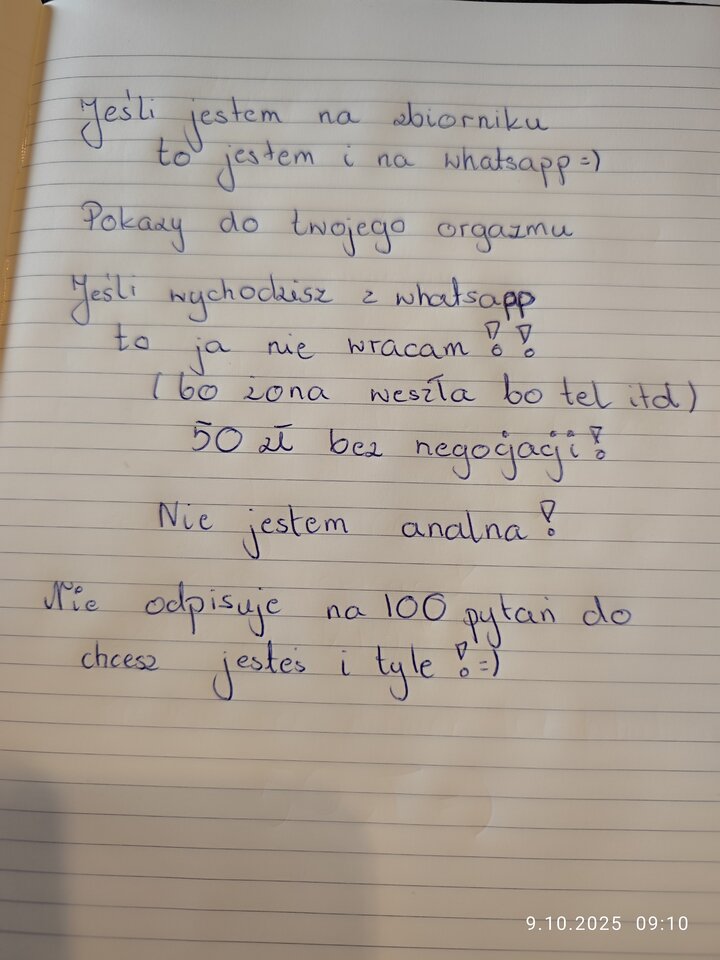 Jeśli jestem na zbiorniku
to jestem i na whatsapp=)
Pokazy do twojego orgazmu
Jeśli wychodzisz z whatsapp
to ja nie wracam!!
(bo żona weszła bo tel itd)
50 zł bez negocjacji!
Nie jestem analna!
Nie odpisuje na 100 pytań do
chcesz jesteś i tyle!=)
9.10.2025 09:10